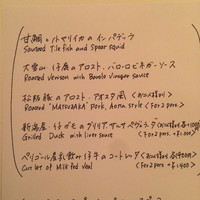 甘鯛とノトヤリイカのインパデッラ
Sauteed Tile fish and Spear squid
大雪山 仔鹿のアロスト、バローロビネガーソース
Roasted Venison with Barolo vinegar sauce
松阪豚のアロスト、アオスタ風
Roasted "MATSUSAKA" Pork, Aosta style <For 2 pers.
新潟産 仔ガモのグリリア、サーサペヴェラーダ
Grilled Duck with liver sauce <For 2 pers.
ペリゴール産乳飲み仔牛のコートレッタ
Cutlet of Milk fed Veal <For 2 pers. +¥1400>